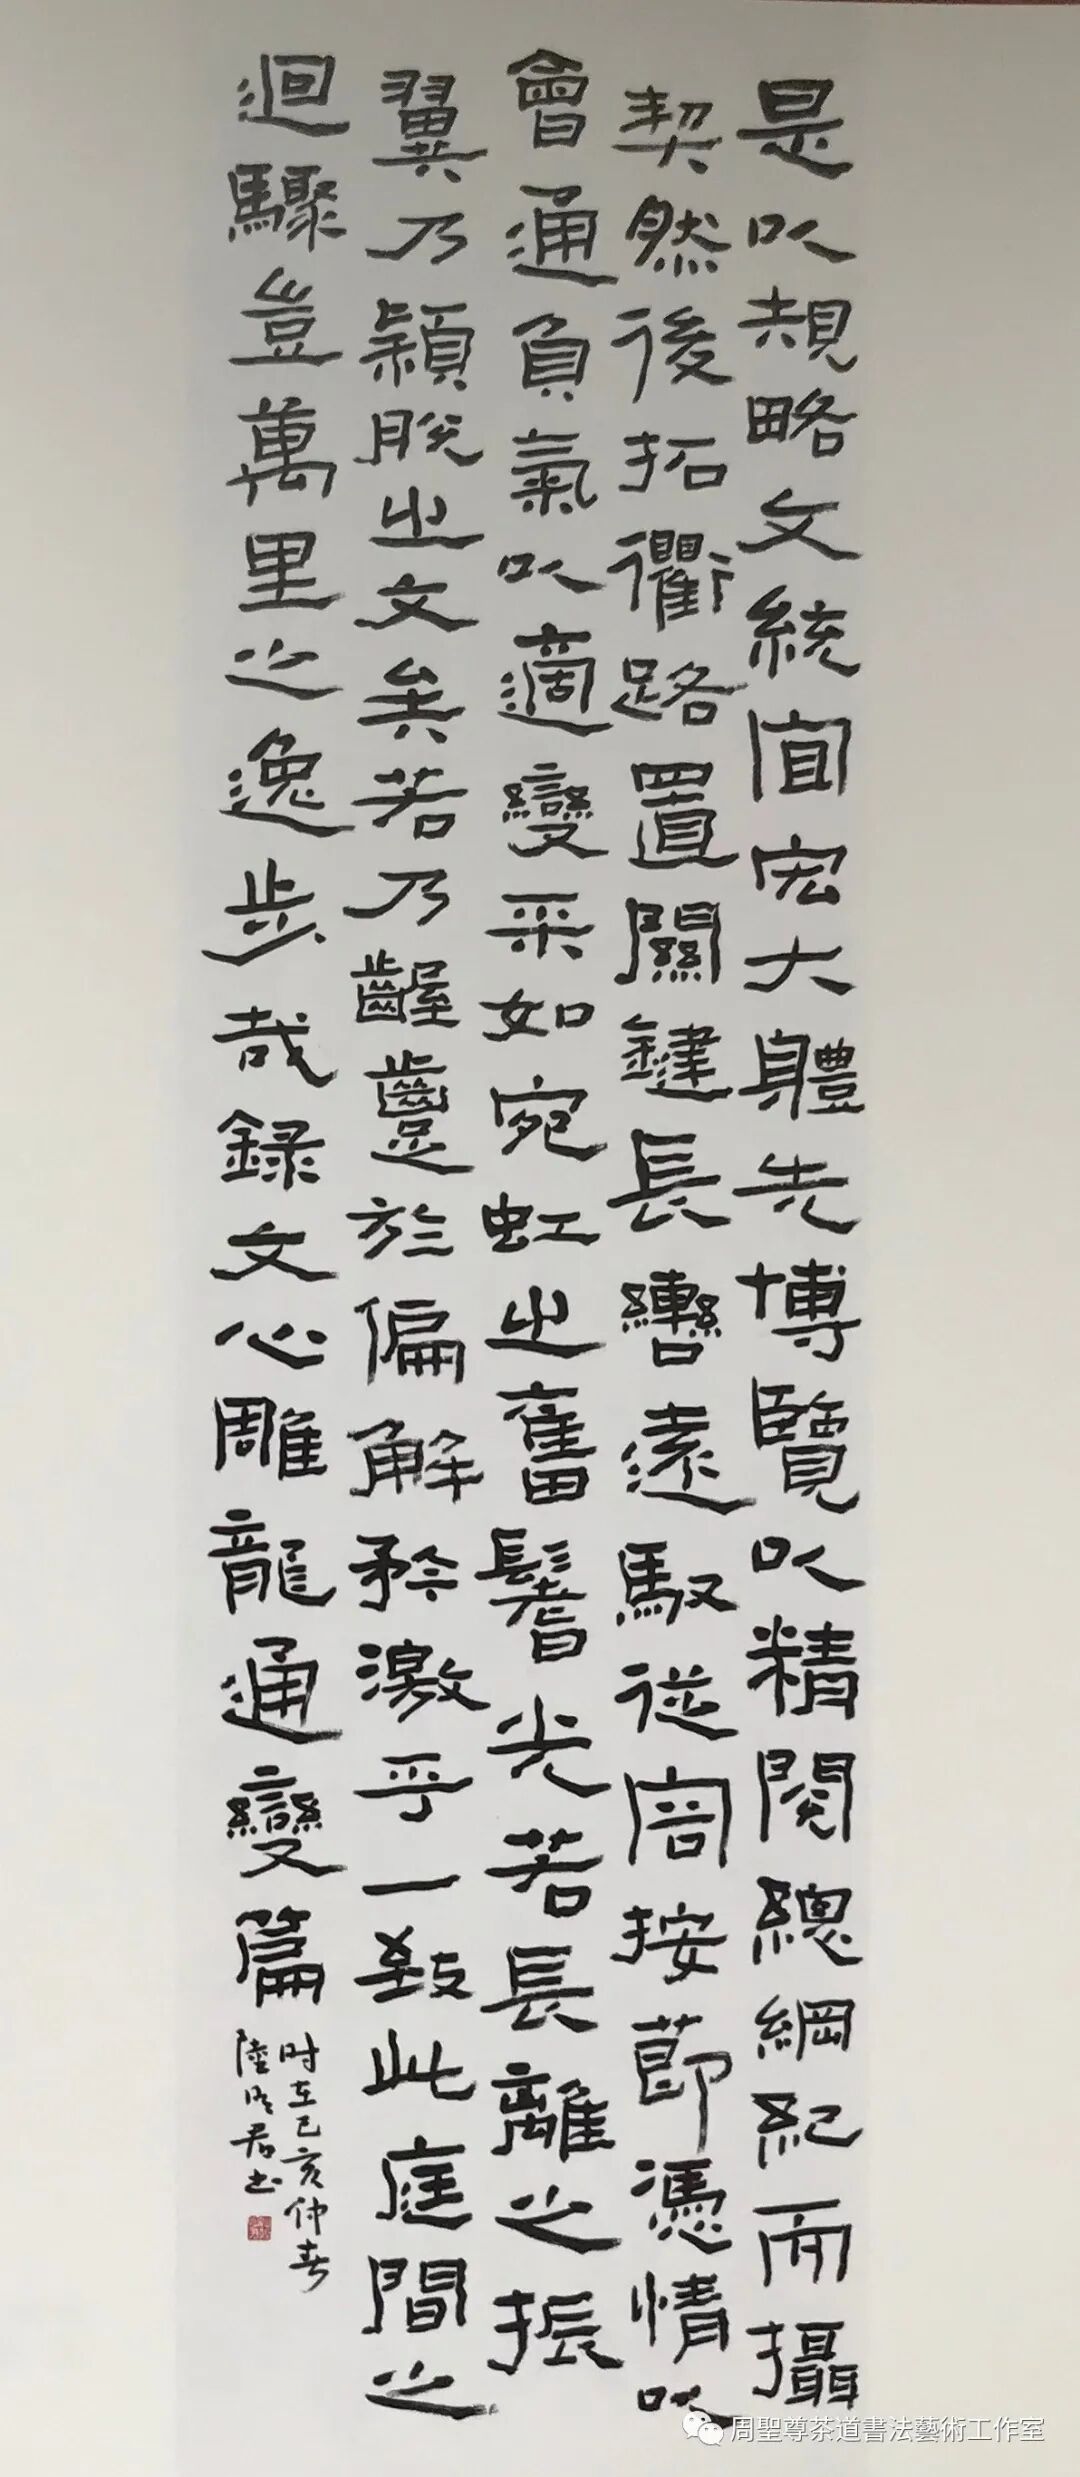 是以規略文統宜宏大體先博覽以精閱總綱紀而攝
契然後拓衢路置關鍵長轡遠馭從容按節憑情以
會通負氣以適變采如宛虹之奮鬐光若長離之振
翼乃穎脫之文矣若乃齷齪於偏解矜激乎一致此庭間之
迴驟豈萬里之逸步哉錄文心雕龍通變篇
时在己亥仲春
陸明君书
周聖尊茶道書法藝術工作室